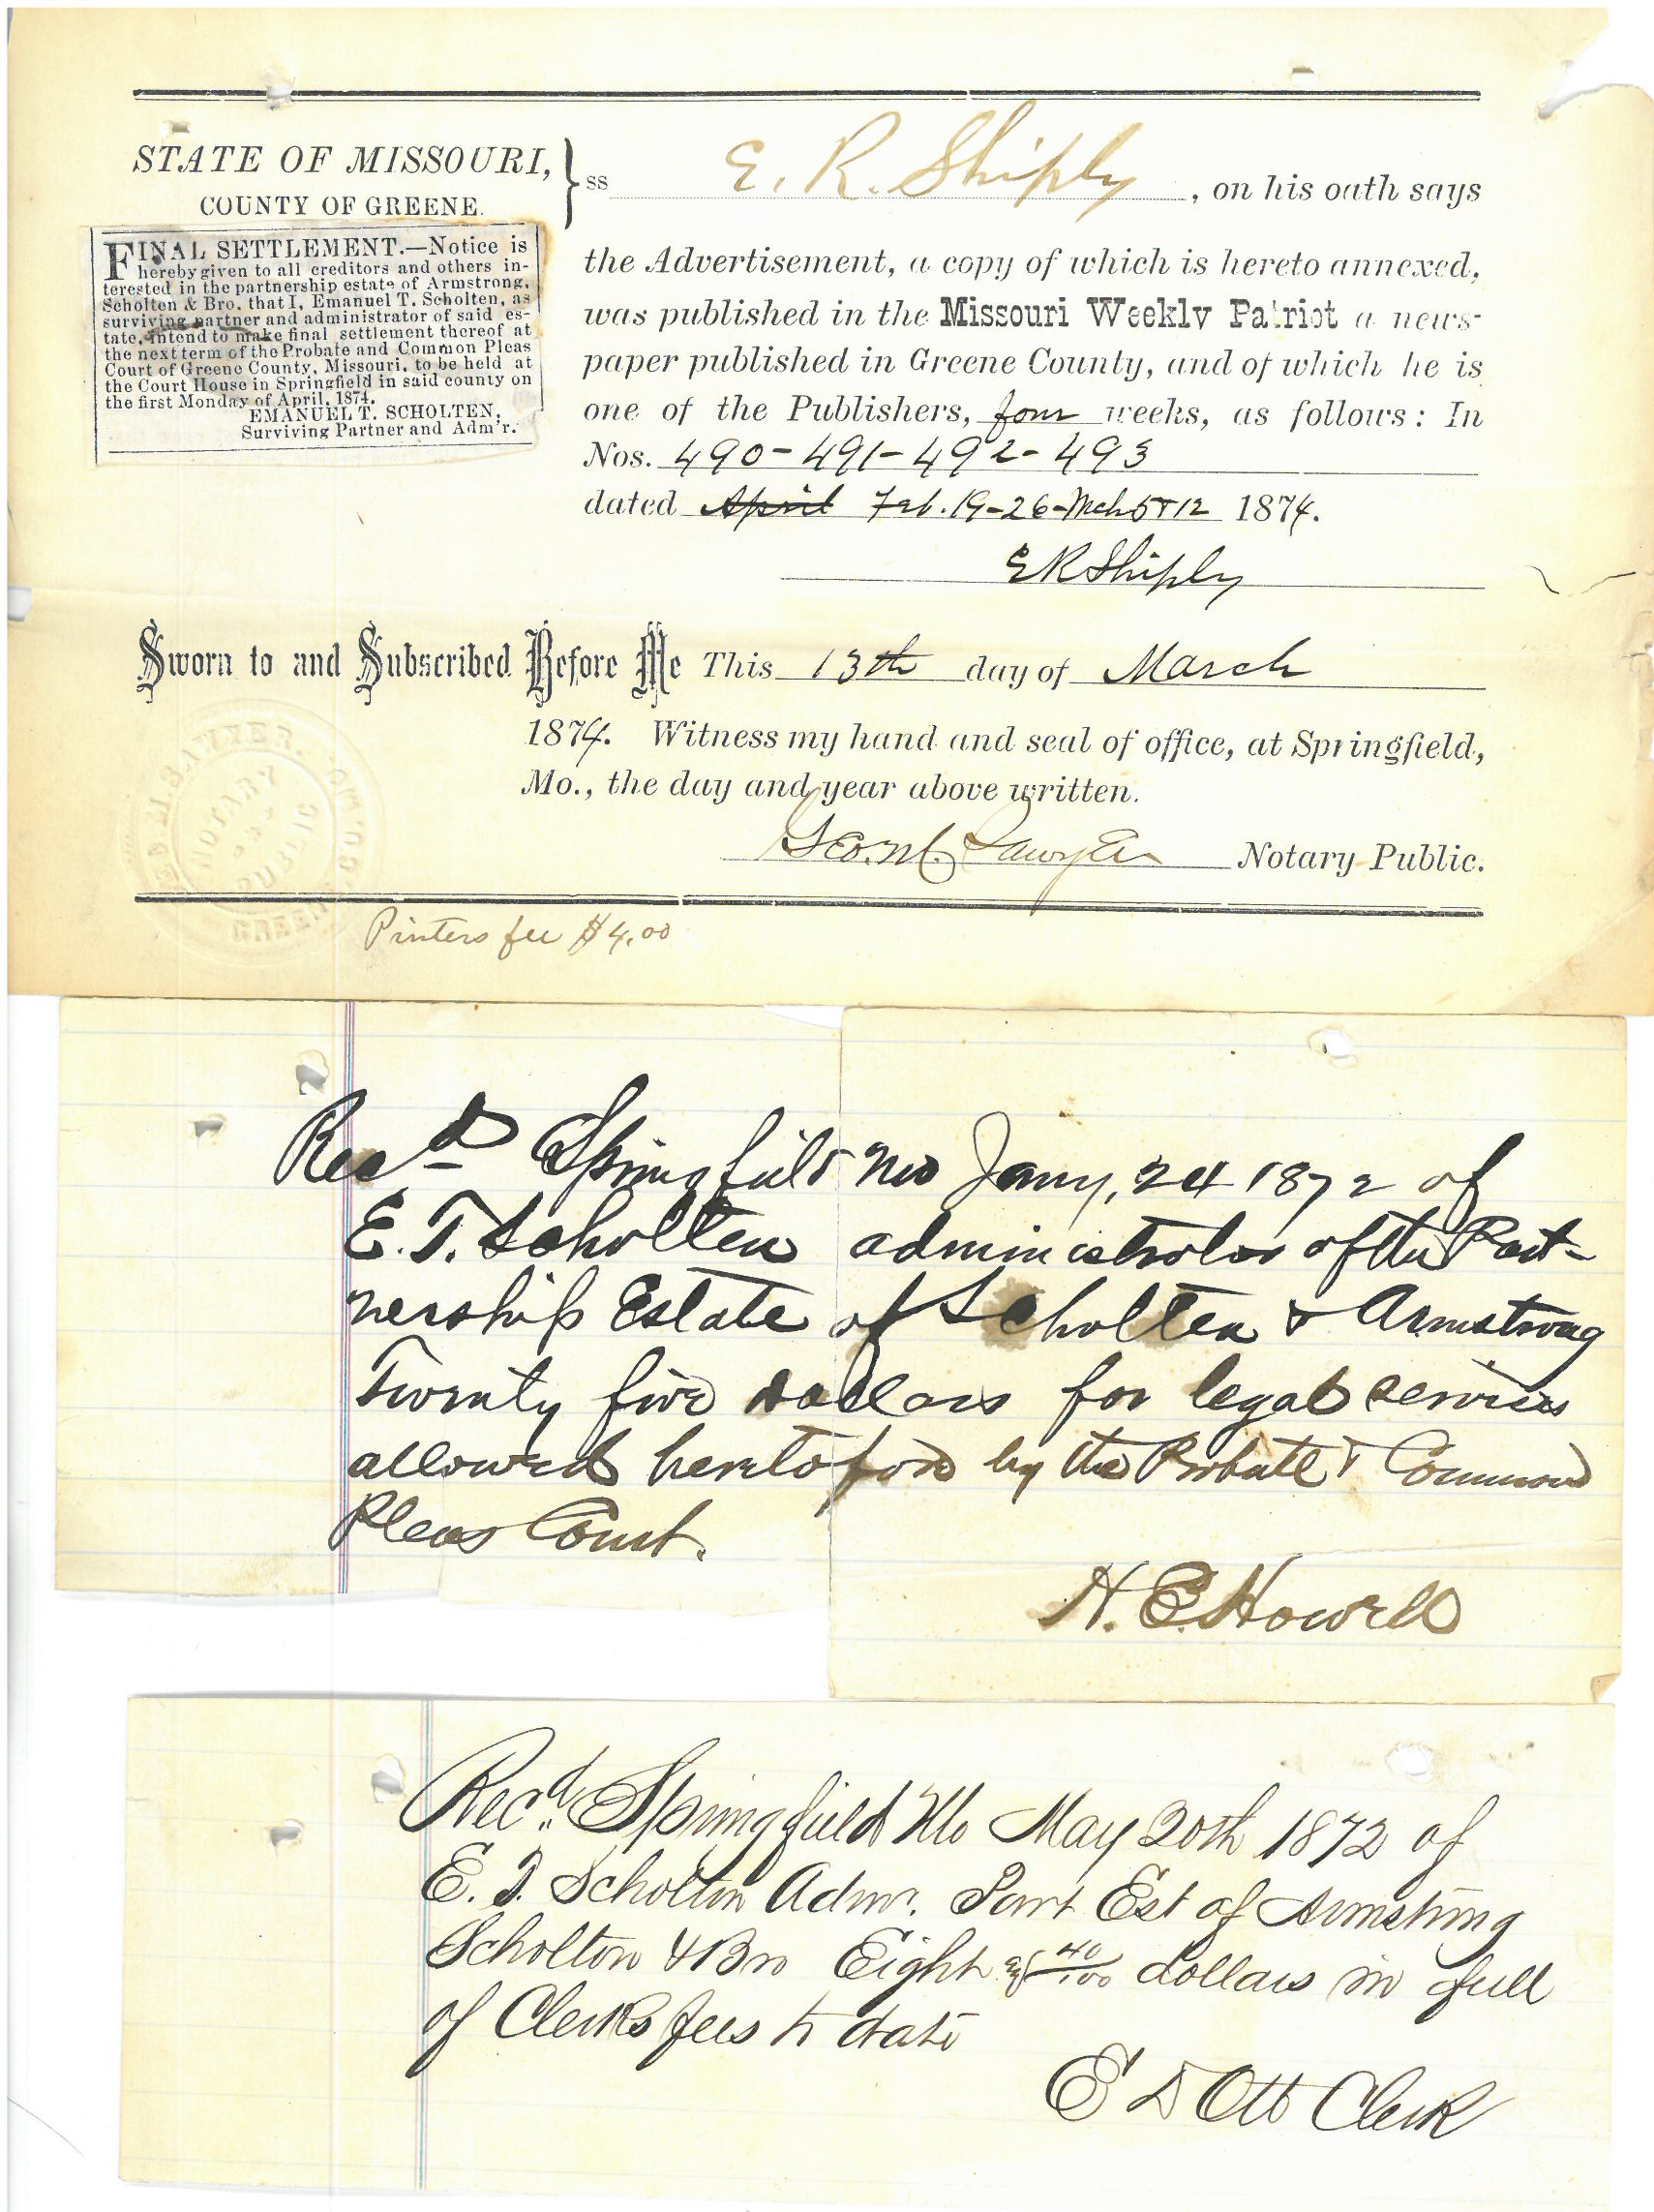 STATE OF MISSOURI,
COUNTY OF GREENE.
} ss E. R. Shiply, on his oath says
FINAL SETTLEMENT.—Notice is
hereby given to all creditors and others in-
terested in the partnership estate of Armstrong,
Scholten & Bro. that I, Emanuel T. Scholten, as
surviving partner and administrator of said es-
tate, intend to make final settlement thereof at
the next term of the Probate and Common Pleas
Court of Greene County, Missouri, to be held at
the Court House in Springfield in said county on
the first Monday of April, 1874.
EMANUEL T. SCHOLTEN,
Surviving Partner and Adm'r.
the Advertisement, a copy of which is hereto annexed,
was published in the Missouri Weekly Patriot a news-
paper published in Greene County, and of which he is
one of the Publishers, four weeks, as follows: In
Nos. 490-491-492-493
dated April Feb. 19-26-Mch 5 & 12 1874.
E R Shiply
Sworn to and Subscribed Before Me This 13th day of March
1874. Witness my hand and seal of office, at Springfield,
Mo., the day and year above written.
Geo. M. Sawyer Notary Public.
SAWYER
NOTARY
PUBLIC
GREEN
CO. MO.
Printers fee $4.00
Recd Springfield Mo Jany, 24 1872 of
E. T. Scholten administrator of the Part-
nership Estate of Scholten & Armstrong
Twenty five dollars for legal services
allowed heretofore by the Probate & Common
Pleas Court.
H. E. Howell
Recd Springfield Mo May 20th 1872 of
E. T. Scholten Admr. Part Est of Armstrong
Scholton & Bro Eight & 40/100 dollars in full
of Clerks fees to date
E D Ott Clerk